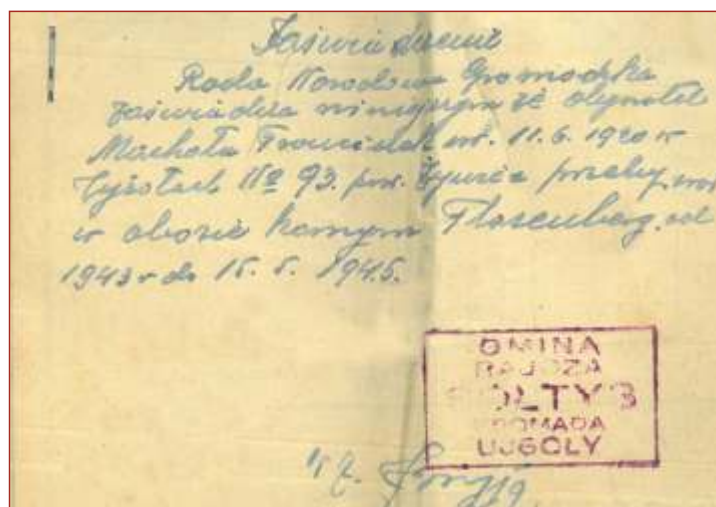 Zaświadczenie
Rada Narodowa Gromadzka
zaświadcza niniejszym że obywatel
Machała Franciszek ur. 11.6.1920 w
No 93. pow. Żywiec przebywał
w obozie karnym Flosenburg, od
1943 r do 15. 5. 1945.
GMINA
RAJCZA
SOŁTYS
GROMADA
UJSOŁY